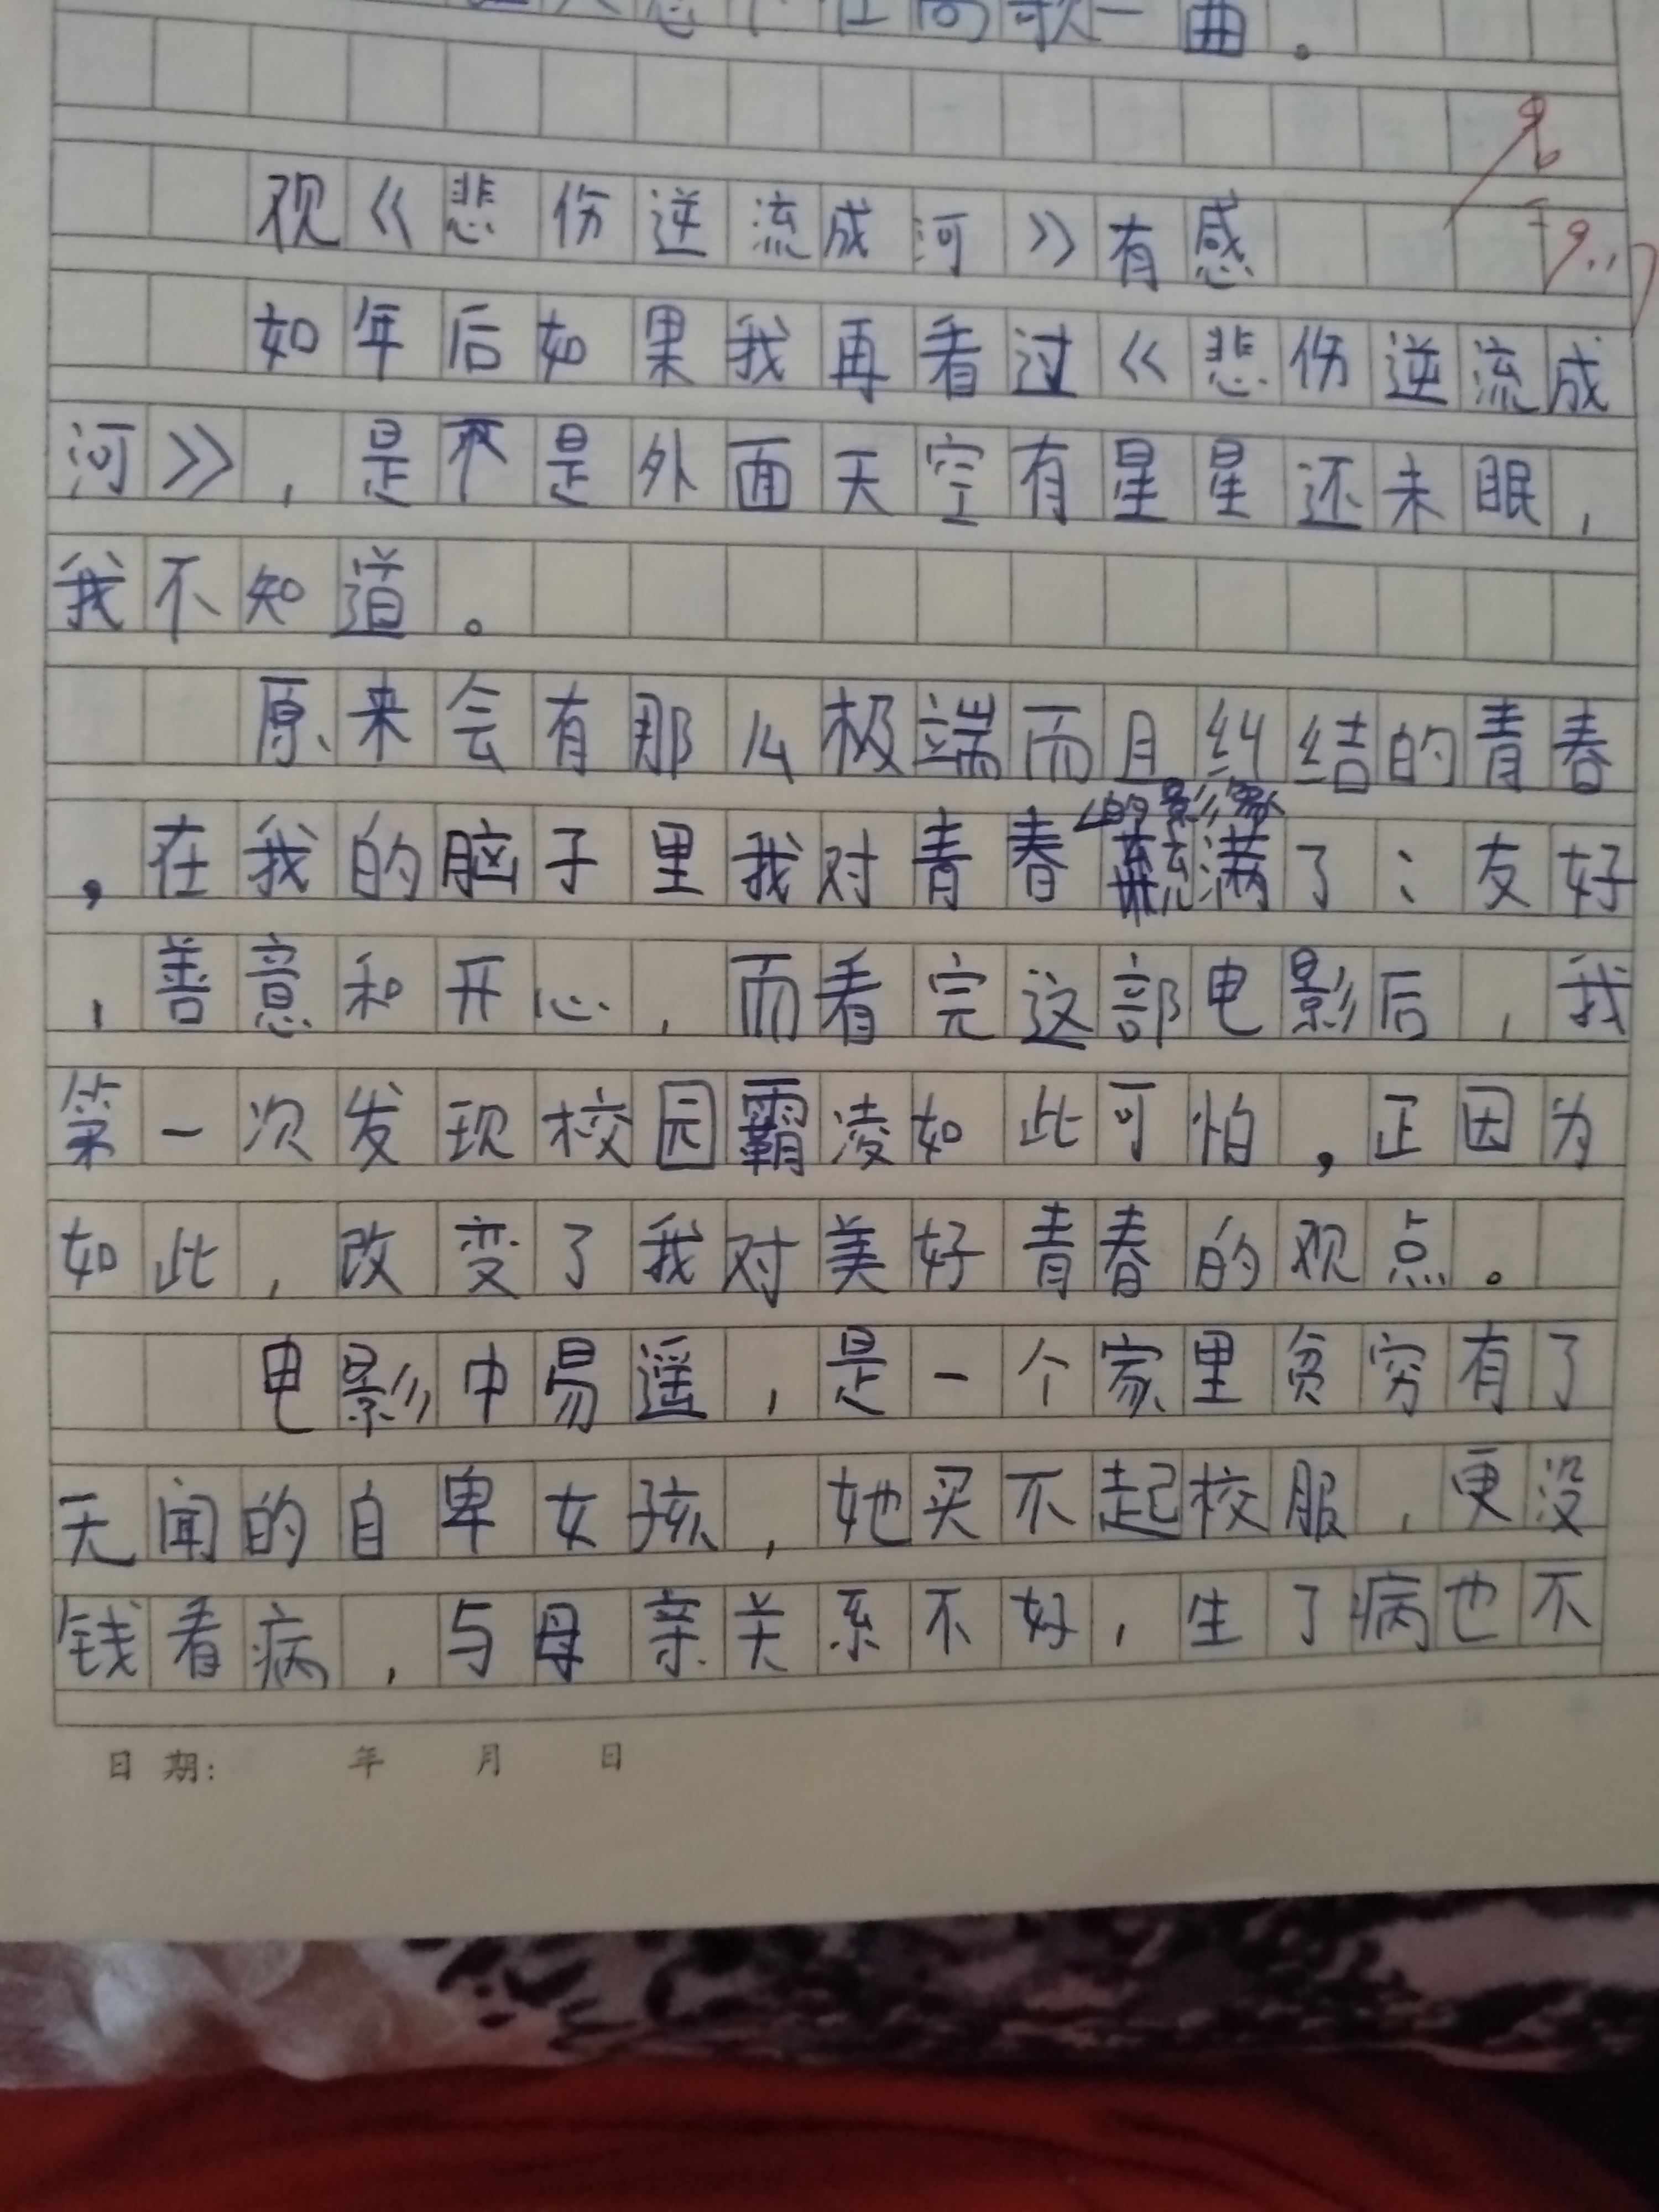 高歌一曲。
观《悲伤逆流成河》有感
如年后如果我再看过《悲伤逆流成
河》，是不是外面天空有星星还未眠，
我不知道。
原来会有那么极端而且纠结的青春
，在我的脑子里我对青春的影像满了：友好
，善意和开心，而看完这部电影后，我
第一次发现校园霸凌如此可怕，正因为
如此，改变了我对美好青春的观点。
电影中易遥，是一个家里贫穷有了
无闻的自卑女孩，她买不起校服，更没
钱看病，与母亲关系不好，生了病也不
日期： 年 月 日